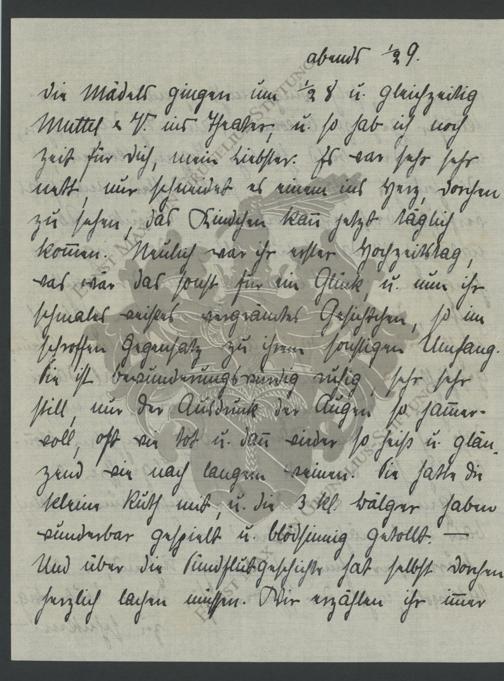 abends ½9.
Die Mädels gingen um ½8 u. gleichzeitig
Muttel & V. ins Theater, u. so hab ich noch
Zeit für Dich, mein Liebster. Es war sehr sehr
nett, nur schneidet es einem ins Herz, Dorchen
zu sehen, das Kindchen kan̄ jetzt täglich
kom̄en. Neulich war ihr erster Hochzeitstag,
was wär das sonst für ein Glück u. nun ihr
schmales weisses vergrämtes Gesichtchen, so im
schroffen Gegensatz zu ihrem sonstigen Umfang.
Sie ist bewunderungswürdig ruhig, sehr sehr
still, nur der Ausdruck der Augen so jammer-
voll, oft wie tot u. dan̄ wieder so heiss u. glän-
zend wie nach langem Weinen. Sie hatte die
kleine Ruth mit, u. die 3 kl. Bälger haben
wunderbar gespielt u. blödsinnig getollt. —
Und über die Sündflutgeschichte hat selbst Dorchen
herzlich lachen müssen. Wir erzählen ihr im̄er